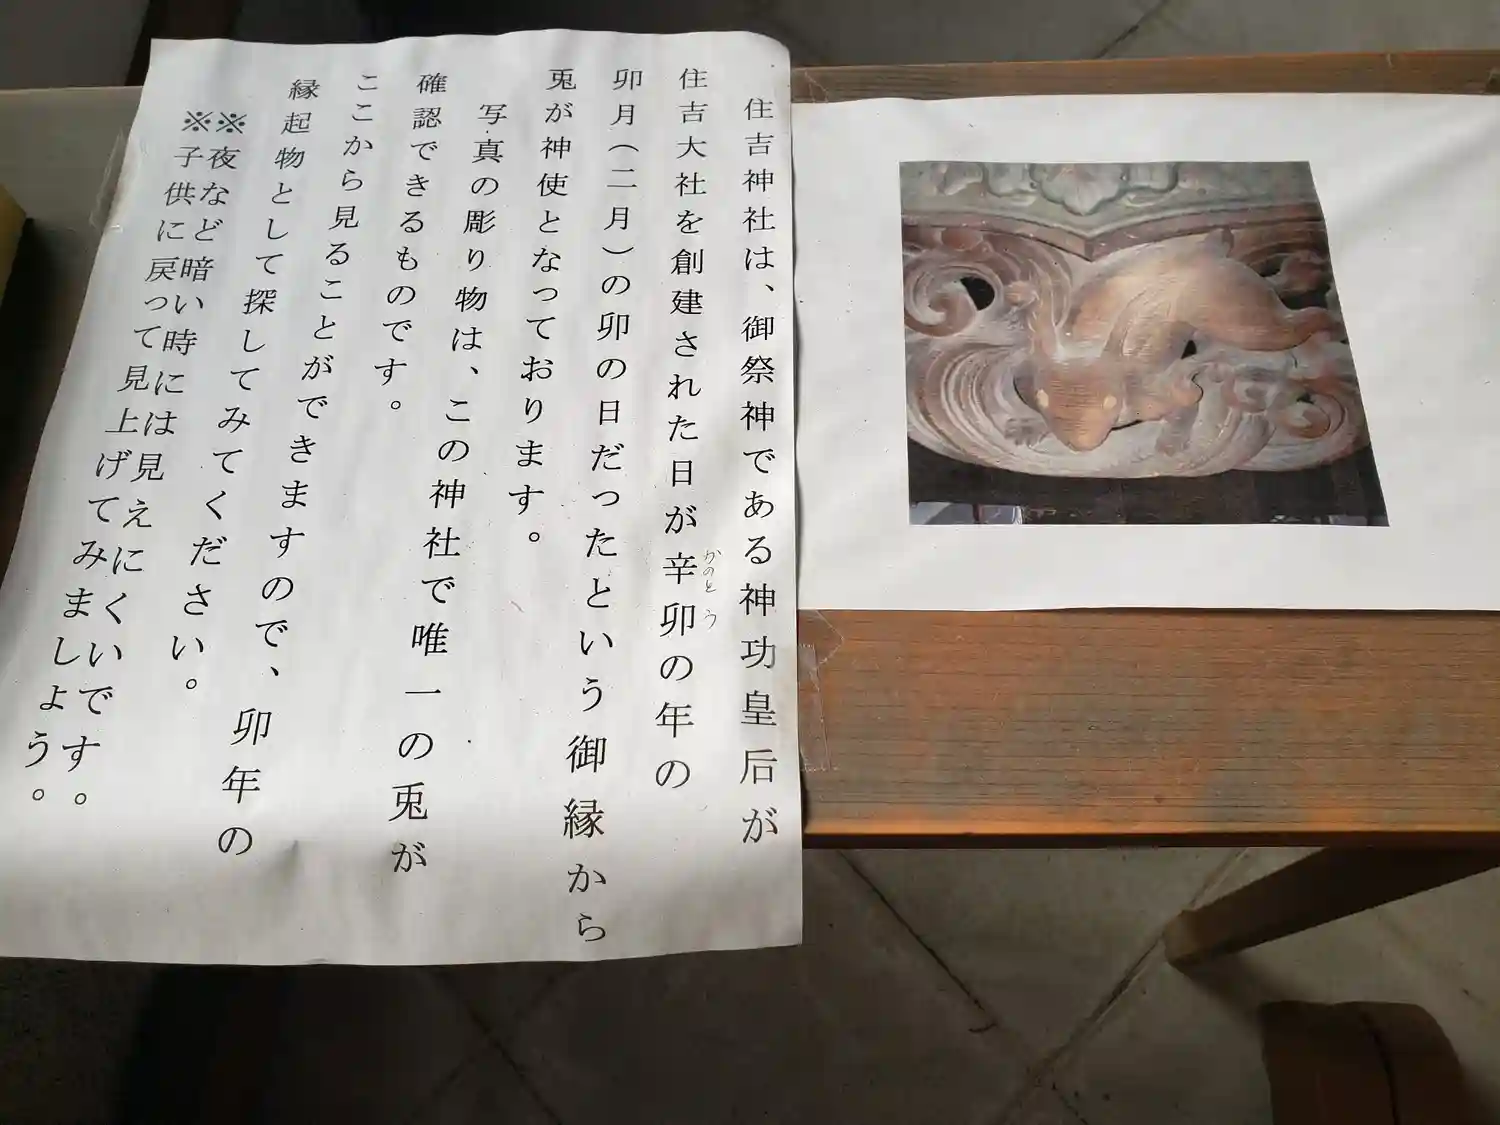 住吉神社は、御祭神である神功皇后が
住吉大社を創建された日が辛卯の年の
かのと う
卯月(二月)の卯の日だったという御縁から
兎が神使となっております。
写真の彫り物は、この神社で唯一の兎が
確認できるものです。
ここから見ることができますので、卯年の
縁起物として探してみてください。
※夜など暗い時には見えにくいです。
※子供に戻って見上げてみましょう。